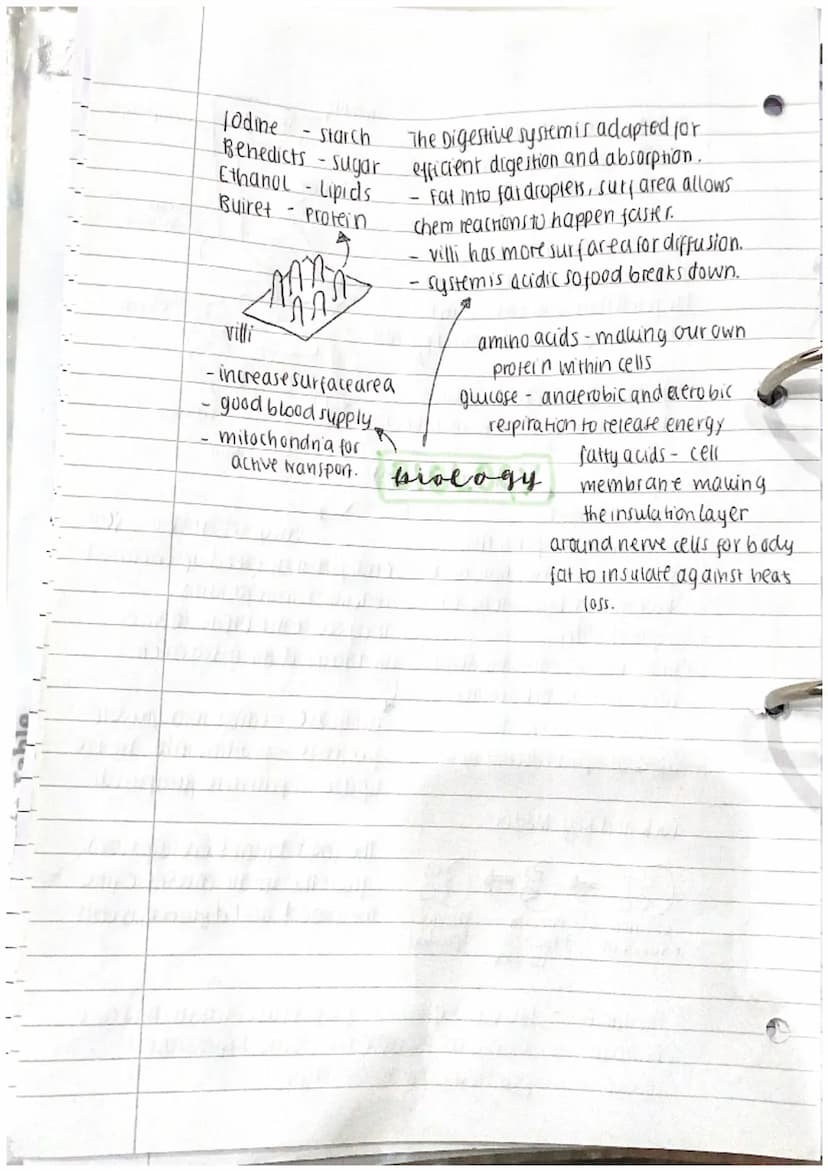 Iodine - starch
Benedicts - sugar
Ethanol - Lipids
Buiret - Protein
villi
- increase surface area
- good blood supply
- mitochondria for
active transport.
The Digestive system is adapted for
efficient digestion and absorption.
- Fat into fat droplets, surf area allows
chem reactions to happen faster.
- villi has more surf area for diffusion.
- system is acidic so food breaks down.
amino acids - making our own
protein within cells
glucose - anderobic and aerobic
respiration to release energy
fatty acids - cell
membrane making
the insulation layer
around nerve cells for body
fat to insulate against heat
loss.
biology